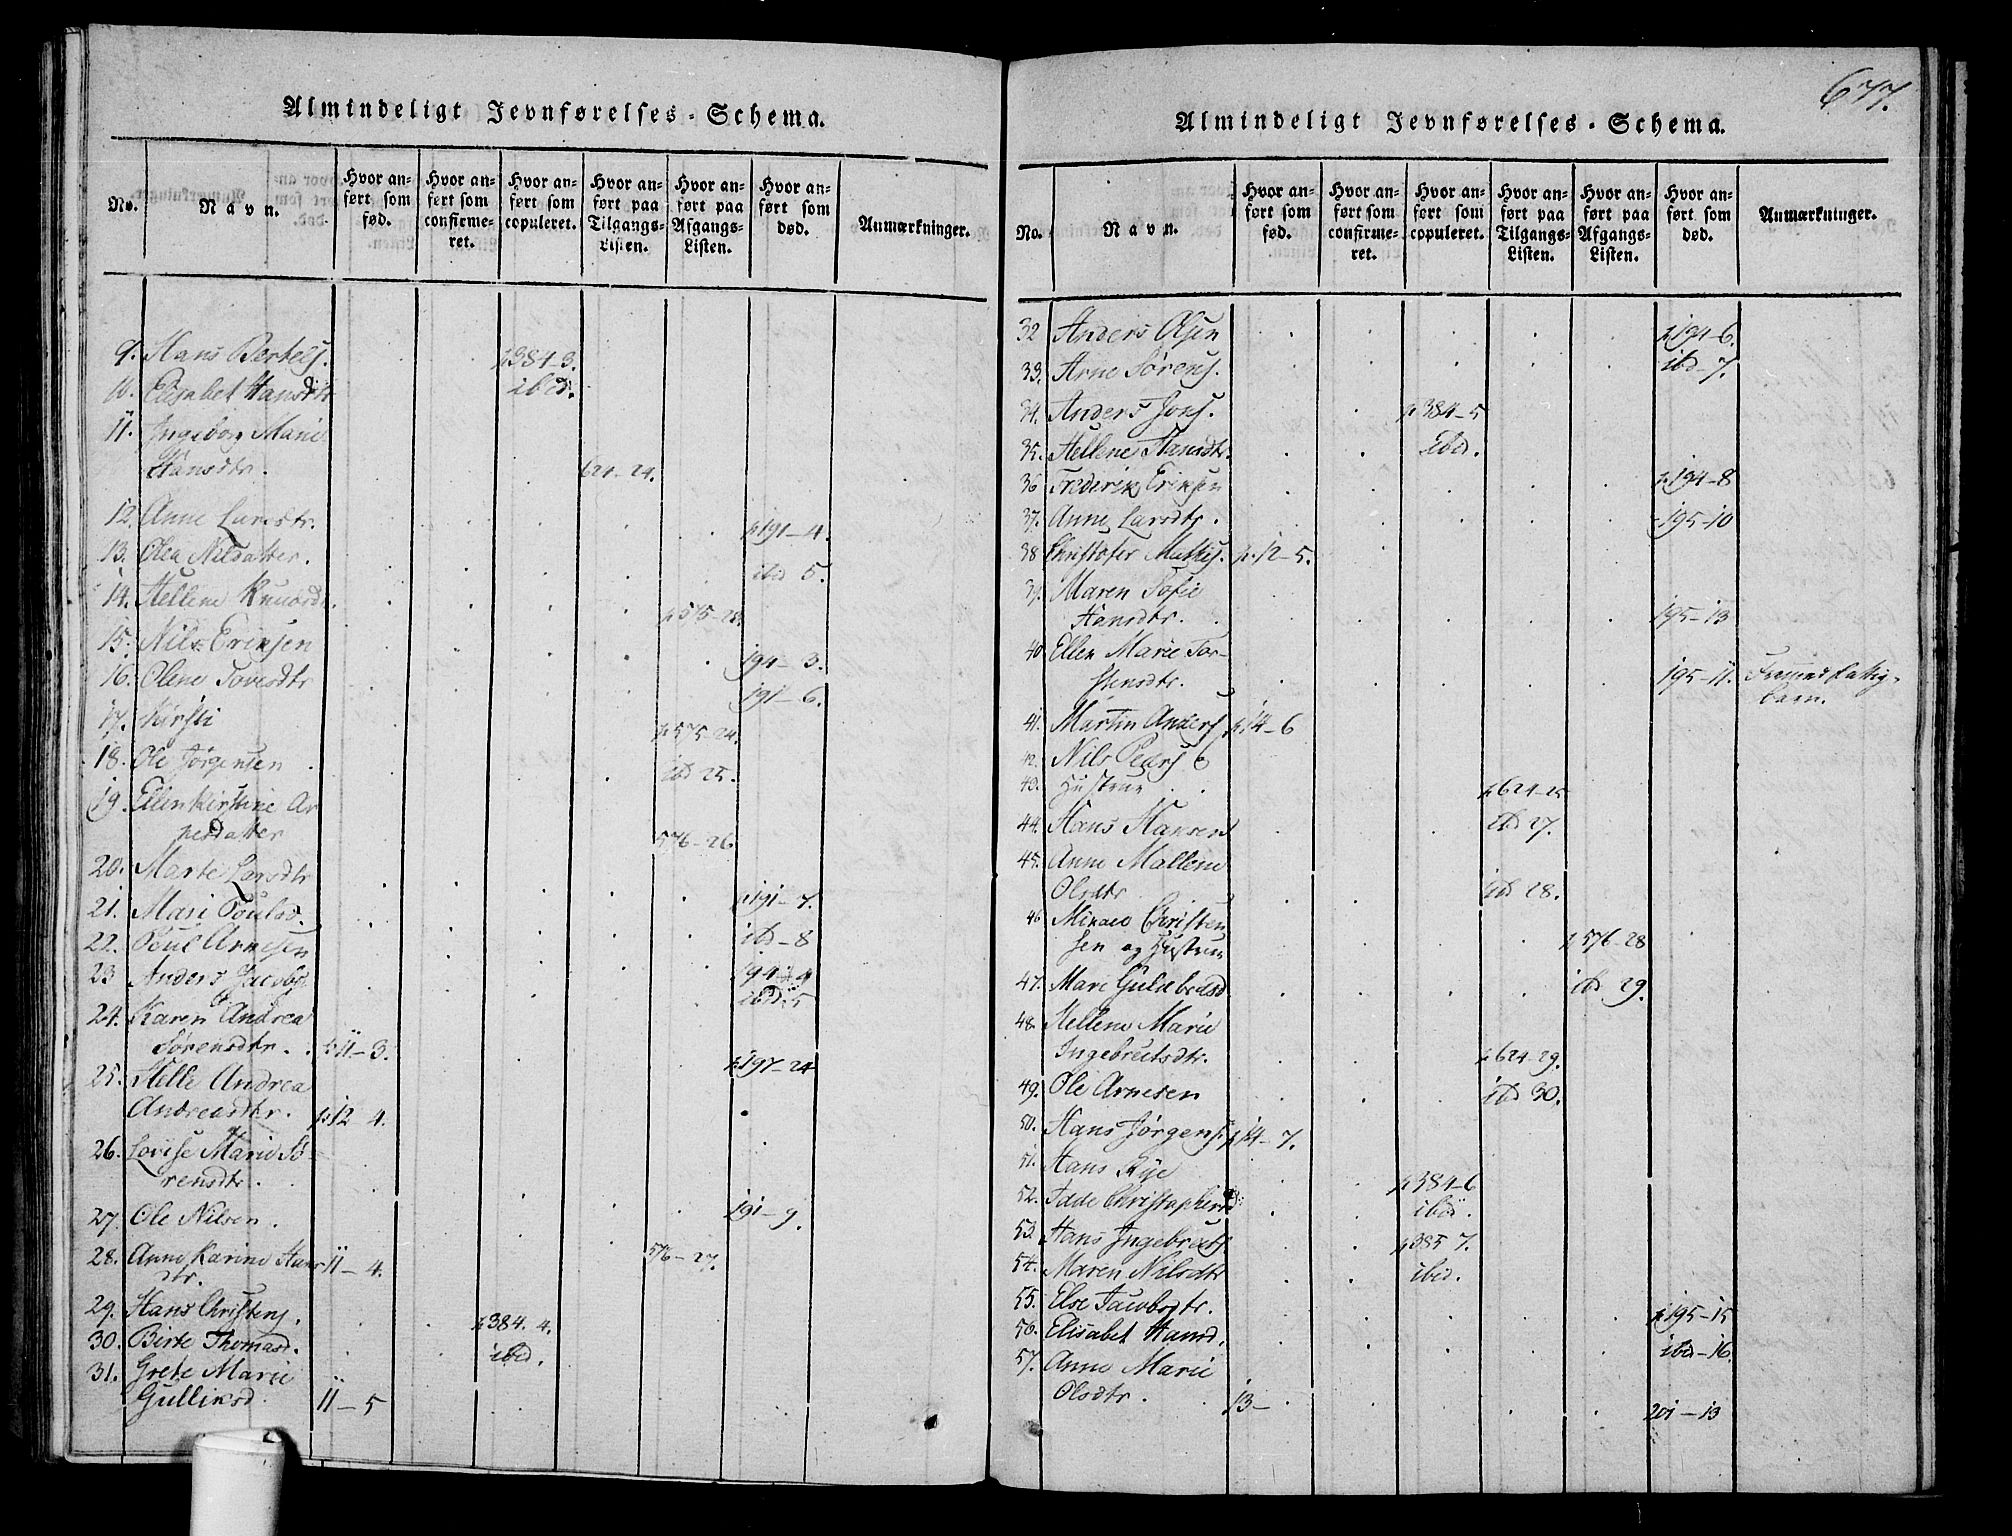 Almindeligt Jevnførelses-Schema.
No.
Navn.
Hvor an-
ført som
fød.
Hvor an-
ført som
confirme-
ret.
Hvor an-
ført som
copuleret.
Hvor an-
ført paa
Tilgangs-
Listen.
Hvor an-
ført paa
Afgangs-
Listen.
Hvor an-
ført som
død.
Anmærkninger.
9. Hans Bertels. p384-3.
10. Elisabet Hansdtr ibid.
11. Ingeborg Marie
Hansdtr. 624-24.
12. Anne Larsdtr. p191-4.
13. Olea Nilsdatter. ibd 5.
14. Hellene Knudsd. p575-23.
15. Nils Eriksen 194-3.
16. Olene Tovesdtr 191-6.
17. Kirsti p575-24.
18. Ole Jørgensen ibd 25.
19. Ellen Kirstine Ar
nesdatter 576-26.
20. Marte Larsdtr p191-7.
21. Mari Poulsd. ibd-8
22. Poul Arnesen 194-4
23 Anders Jacobs. ibid. 5
24. Karen Andrea
Sørensdtr. p11-3.
25. Helle Andrea p197-24
Andreasdtr. p12 4.
26. Lovise Marie Sø-
rensdtr.
27. Ole Nilsen. 191-9.
28. Anne Karine Hans 11-4. 576-27.
dtr.
29. Hans Christens. p384. 4.
30. Birte Thomasd. ibid.
31. Grete Marie
Gulliksd. 11-5
677.
Almindeligt Jevnførelses-Schema.
No.
Navn.
Hvor an-
ført som
fød.
Hvor an-
ført som
confirme-
ret.
Hvor an-
ført som
copuleret.
Hvor an-
ført paa
Tilgangs-
Listen.
Hvor an-
ført paa
Afgangs-
Listen.
Hvor an-
ført som
død.
Anmærkninger.
32 Anders Olsen p194-6.
33. Arne Sørens. ibd-7.
34. Anders Jons. p384-5
35. Hellene Hansdtr. ibid.
36 Frederik Eriksen p194-8
37. Anne Larsdtr. 195-10
38 Christofer Mathis. p.12-5.
39. Maren Sofie
Hansdtr. 195-13
40 Ellen Marie Tor-
stensdtr. 195-11. Fremmed Fattig-
barn.
41. Martin Anders. p.14-6
42. Nils Peders &
43. Hustrue p624-25
44. Hans Hansen ibd 27.
45. Anne Mallene
Olsdtr ibd 28.
46 Mikael Christen
sen og Hustrue p576-28
47. Mari Guldbrdsd ibd 29.
48. Hellene Marie
Ingebretsdtr. p624-29.
49. Ole Arnesen ibd 30.
50. Hans Jørgens. p14-7.
51. Hans Rye p384-6
52. Idde Christophersd: ibid.
53 Hans Ingebrets. p385 7.
54. Maren Nilsdtr ibid.
55. Else Jacobsdtr. p195-15
56. Elisabet Hansd. ibid-16.
57. Anne Marie
Olsdtr. 13- 201-13